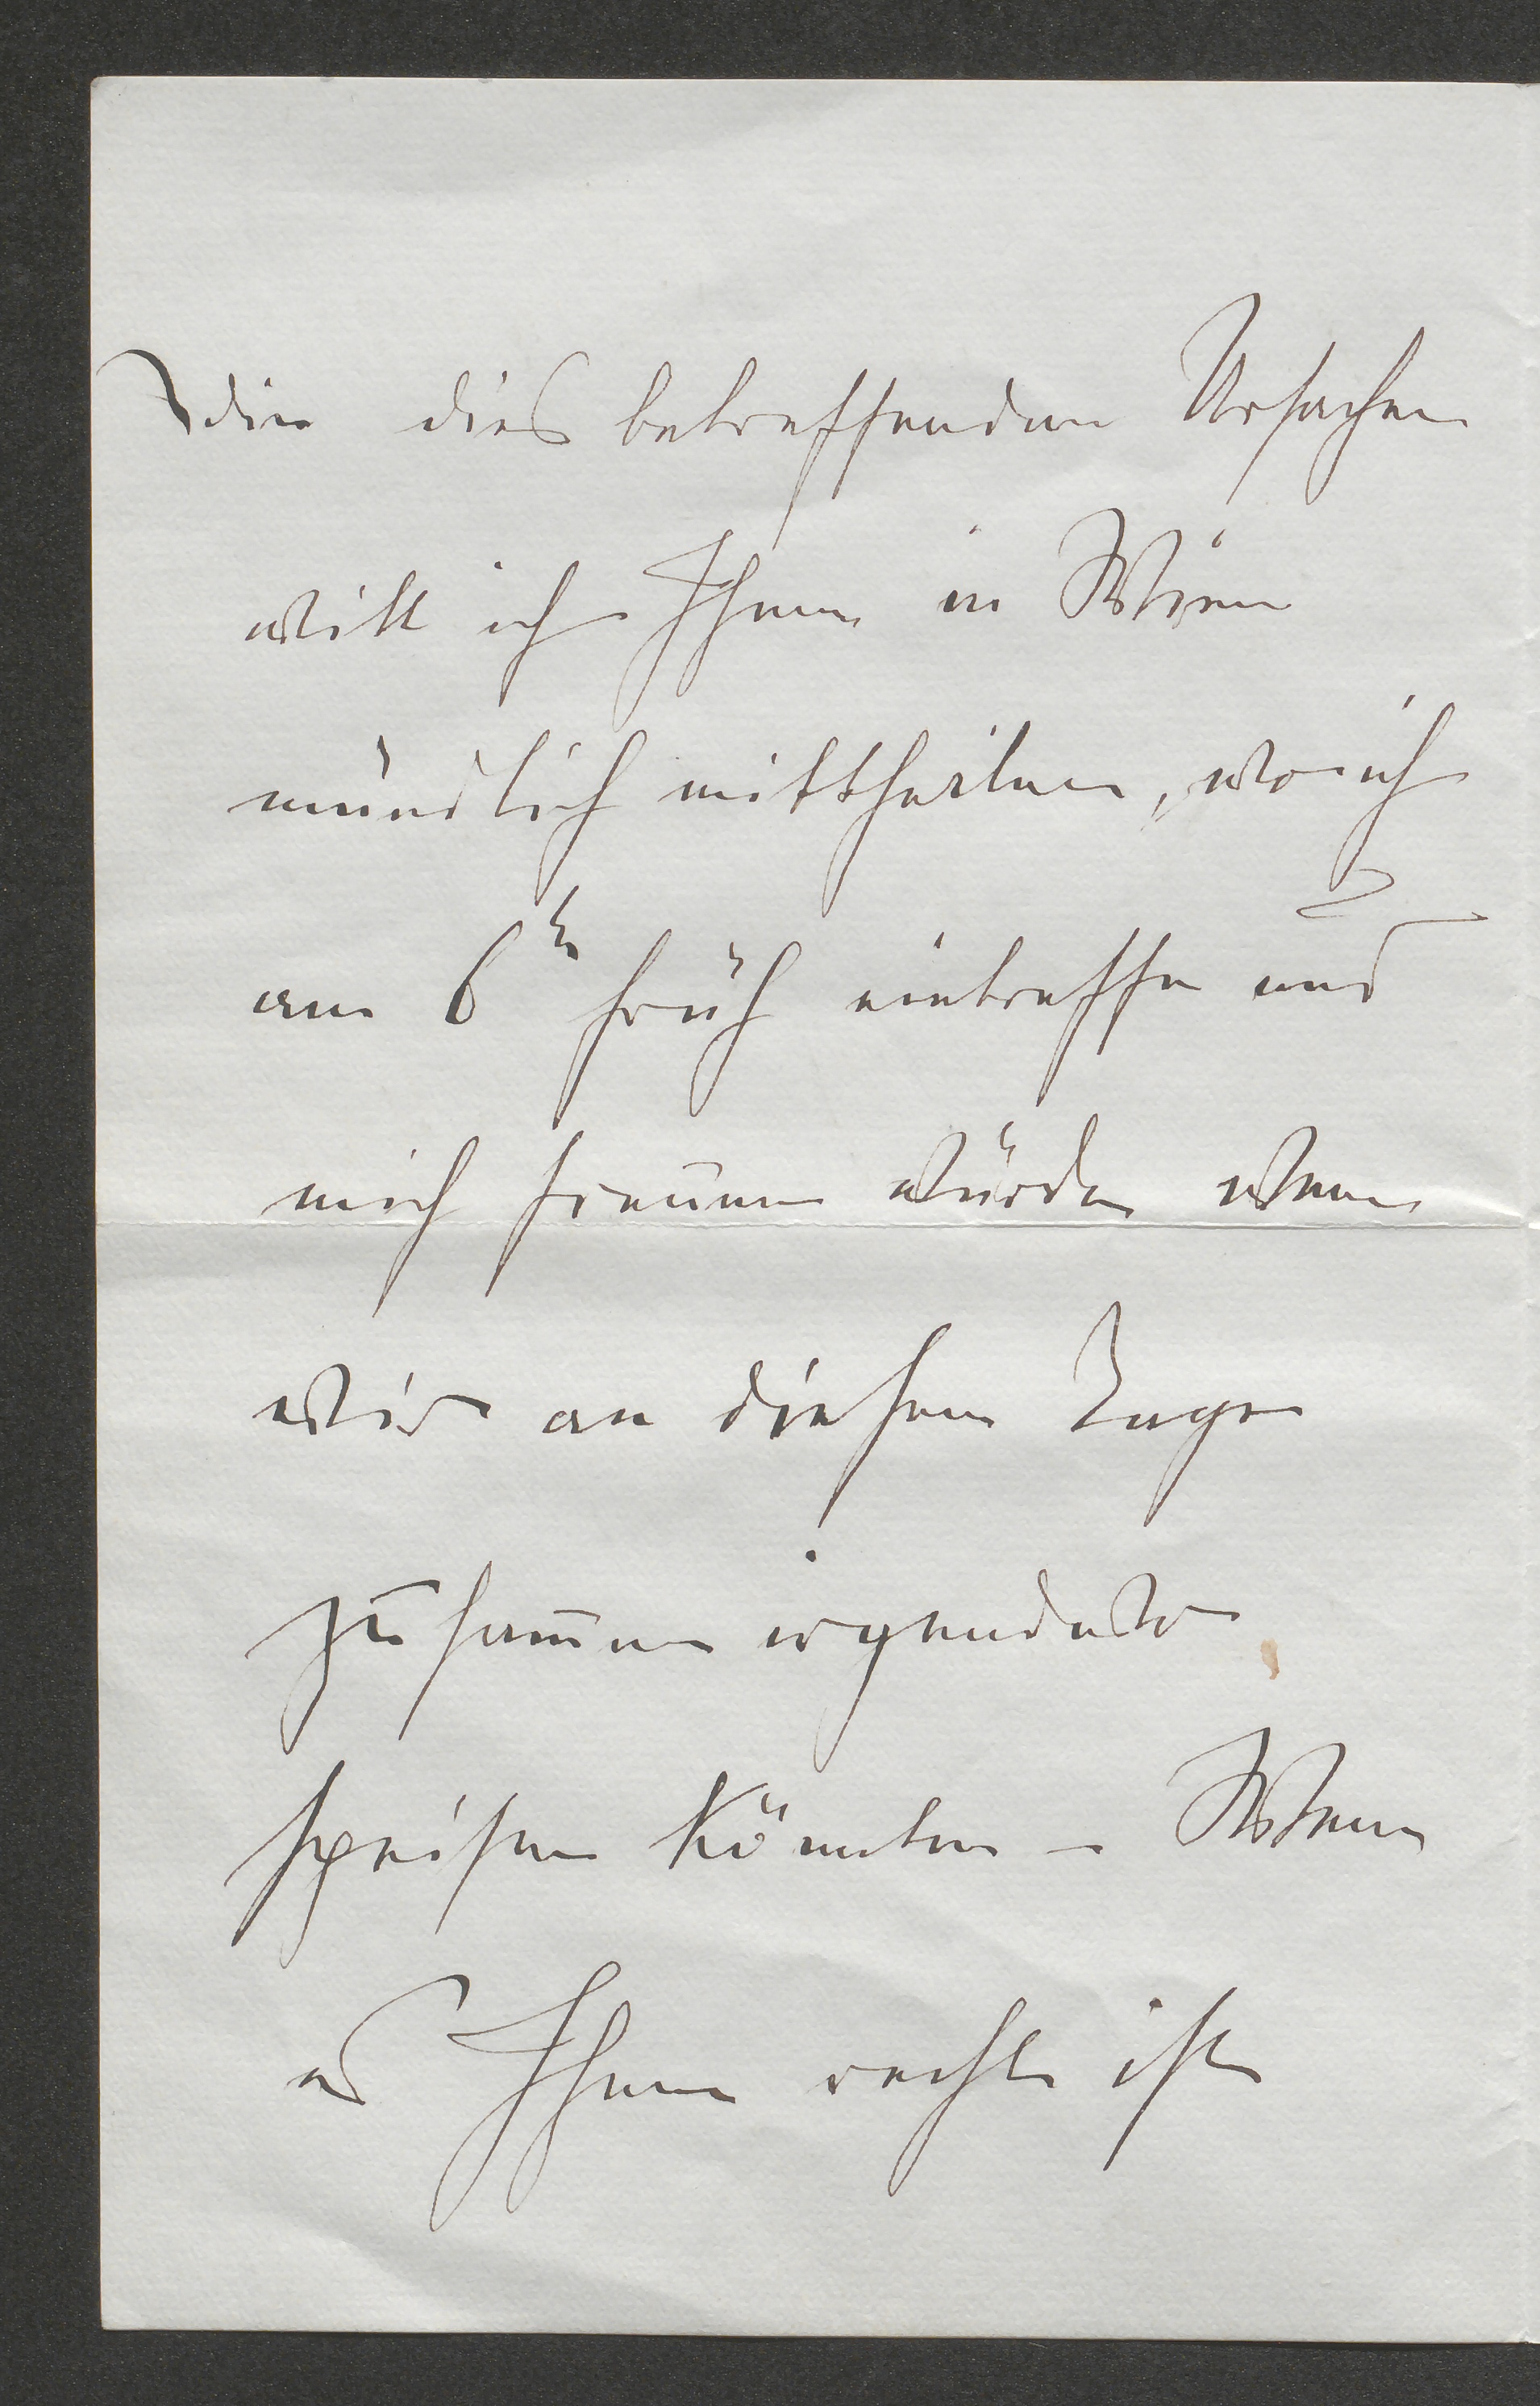 die dies betreffenden Ursachen
will ich Ihnen in Wien
mündlich mittheilen, wo ich
am 6t früh eintreffe und
mich freuen würde wenn
wir an diesem Tage
zusam̅en irgendwo
speisen könnten – Wenn
es Ihnen recht ist